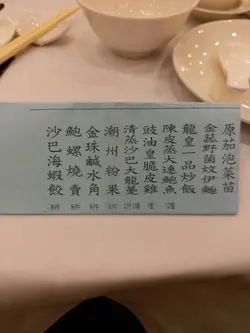 原茄泡菜苗
金菇野菌炆伊麵
龍皇一品炒飯
陳皮蒸大連鮑魚
豉油皇脆皮雞
清蒸沙巴大龍躉
潮州粉果
金珠鹹水角
鮑螺燒賣
沙巴海蝦餃